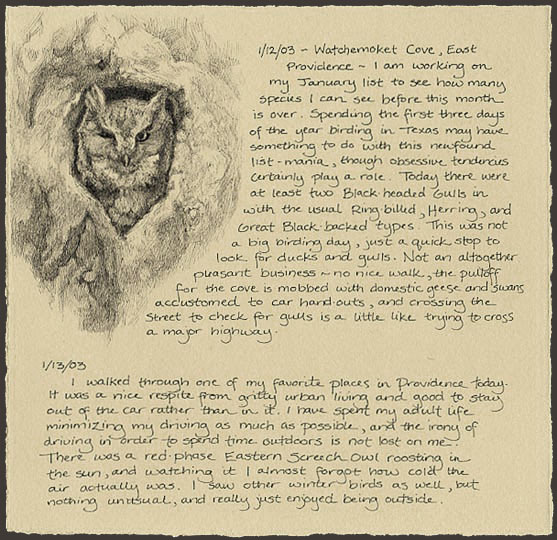 1/12/03 - Watchemoket Cove, East
Providence ~ I am working on
my January list to see how many
species I can see before this month
is over. Spending the first three days
of the year birding in Texas may have
something to do with this newfound
list-mania, though obsessive tendencies
certainly play a role. Today there were
at least two Black-headed Gulls in
with the usual Ring-billed, Herring, and
Great Black-backed types. This was not
a big birding day, just a quick stop to
look for ducks and gulls. Not an altogether
pleasant business ~ no nice walk, the pulloff
for the cove is mobbed with domestic geese and swans
accustomed to car hand-outs, and crossing the
street to check for gulls is a little like trying to cross
a major highway.
1/13/03
I walked through one of my favorite places in Providence today.
It was a nice respite from gritty urban living and good to stay
out of the car rather than in it. I have spent my adult life
minimizing my driving as much as possible, and the irony of
driving in order to spend time outdoors is not lost on me.
There was a red-phase Eastern Screech Owl roosting in
the sun, and watching it I almost forgot how cold the
air actually was. I saw other winter birds as well, but
nothing unusual, and really just enjoyed being outside.